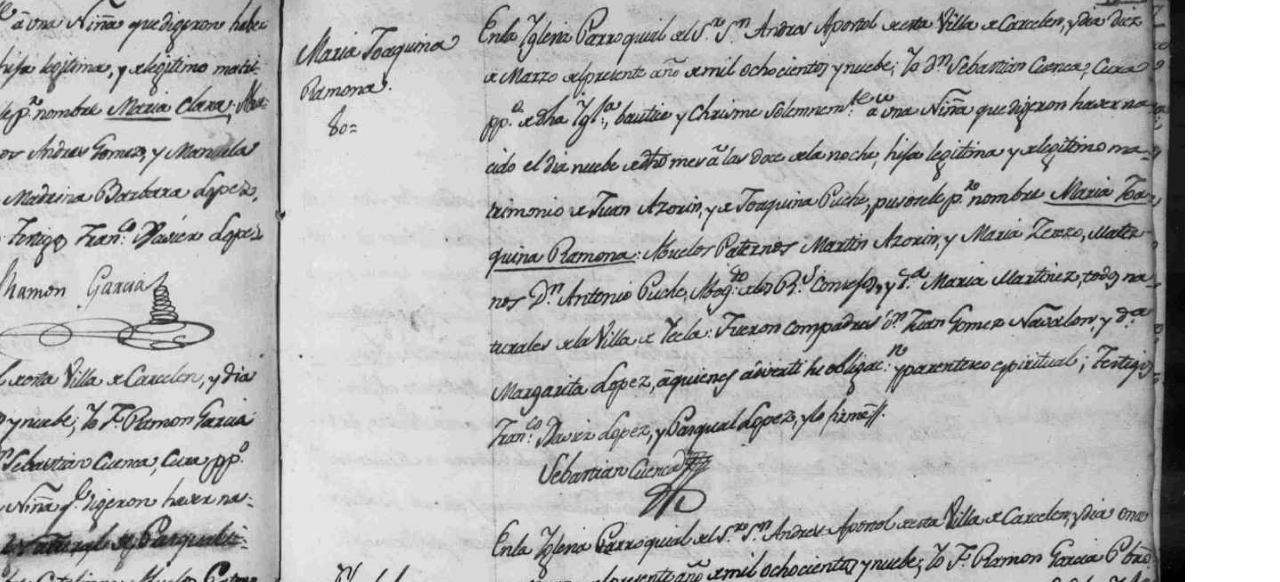 â una Niña que digeron habe
hija legitima, y de legitimo matri-
p.r nombre Maria Clara; Abue
or Andres Gomez, y Manuela
Madrina Barbara Lopez,
Testigos Fran.co Xavier Lopez
Ramon Garcia
de esta Villa de Carcelen, y dia
y nuebe; Yo F. Ramon Garcia
Sebastian Cuenca, Cura pp.o
Niña q.e digeron haver na-
Maria Joaquina
Ramona.
80=
En la Yglesia Parroquial del S.r S.n Andres Apostol de esta Villa de Carcelen, y dia diez
de Marzo del presente año de mil ochocientos y nuebe; Yo D.n Sebastian Cuenca, Cura
pp.o de dha Ygl.a, bautize y Chrisme Solemnem.te â una Niña que digeron haver na-
cido el dia nuebe de dho mes â las doce de la noche, hija legitima y de legitimo ma-
trimonio de Juan Azorin, y de Joaquina Puche, pusosele p.r nombre Maria Joa-
quina Ramona: Abuelos Paternos Martin Azorin, y Maria Zerzo, Mater-
nos D.n Antonio Puche, Abog.do de los R.s Consejos, y D.a Maria Martinez, todos na-
turales de la Villa de Yecla: Fueron compadres D.n Juan Gomez Navalon, y D.a
Margarita Lopez, â quienes adverti la obligac.n y parentesco espiritual; Testigos
Fran.co Xavier Lopez, y Pasqual Lopez, y lo firmé
Sebastian Cuenca
En la Yglesia Parroquial del S.r S.n Andres Apostol de esta Villa de Carcelen, y dia once
del presente año de mil ochocientos y nuebe; Yo F. Ramon Garcia Pbro